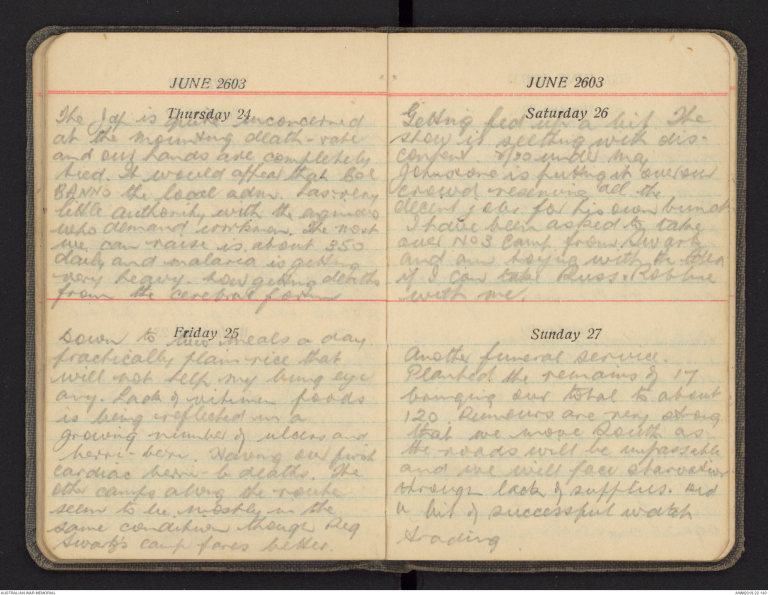 JUNE 2603
Thursday 24
The Jap is quite unconcerned
at the mounting death-rate
and our hands are completely
tied. It would appear that Col
BANNO the local adm. has very
little authority with the
who demand workmen. The most
we can raise is about 350
daily and malaria is getting
very heavy. Now getting deaths
from the cerebral form
Friday 25
Down to two meals a day
practically plain rice that
will not help my bung eye
any. Lack of vitimin foods
is being reflected in a
growing number of ulcers and
berri-berri. Having our first
cardiac berri-b deaths. The
other camps along the route
seem to be mostly in the
same condition though Reg
Swartz's camp fares better.
JUNE 2603
Saturday 26
Getting fed up a bit. The
show is seething with dis-
content. 1900 under Maj
Johnstone is putting it over our
crowd reserving all the
decent jobs for his own bunch
I have been asked to take
over No 3 Camp from Swartz
and am toying with the idea
if I can take Russ. Robbie
with me.
Sunday 27
Another funeral service.
Planted the remains of 17
bringing our total to about
120. Rumours are very strong
that we move South as
the roads will be impassable
and we will face starvation
through lack of supplies. Did
a bit of successful watch
trading
AUSTRALIAN WAR MEMORIAL